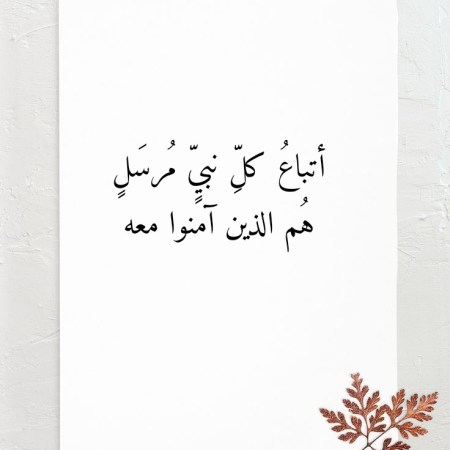 أتباعُ كلِّ نبيٍّ مُرسَلٍ
هُم الذين آمنوا معه